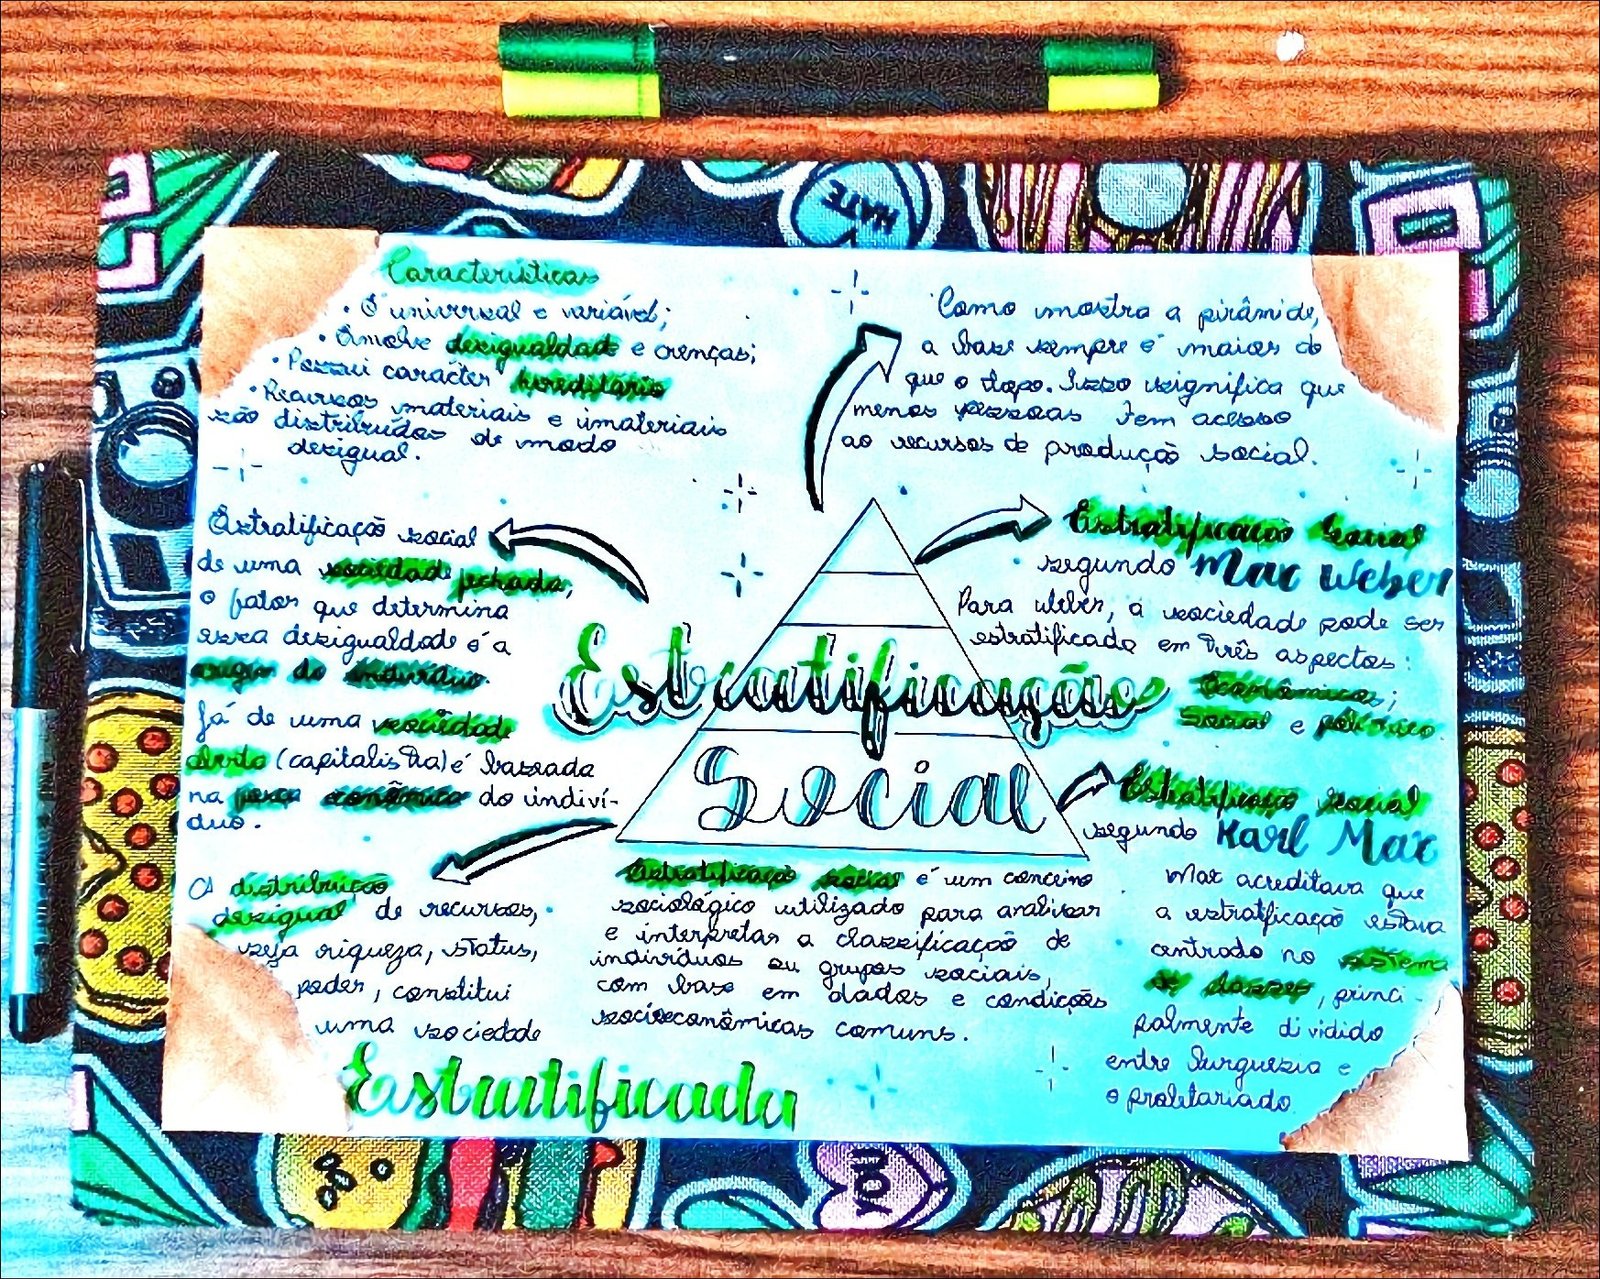 HATE
Características
• É universal e variável;
• Envolve desigualdade e crenças;
• Possui caracter hereditário
• Recursos materiais e imateriais
são distribuídos de modo
desigual.
Como mostra a pirâmide,
a base sempre é maior do
que o topo. Isso significa que
menos pessoas tem acesso
ao recursos de produção social.
Estratificação social
de uma sociedade fechada,
o fator que determina
essa desigualdade é a
origem do indivíduo.
Já de uma sociedade
aberta (capitalista) é baseada
na econômica do indiví-
duo.
Estratificação Social
segundo Max Weber
Para Weber, a sociedade pode ser
estratificada em três aspectos:
Econômicos;
Social e político.
Estratificação
Social
Estratificação social
segundo Karl Max
Max acreditava que
a estratificação estava
centrado no sistema
de classes, princi-
palmente dividido
entre burguesia e
o proletariado
A distribuição
desigual de recursos,
seja riqueza, status,
poder, constitui
uma sociedade
Estratificada
Estratificação social é um conceito
sociológico utilizado para analisar
e interpretar a classificação de
indivíduos ou grupos sociais,
com base em dados e condições
socioeconômicas comuns.